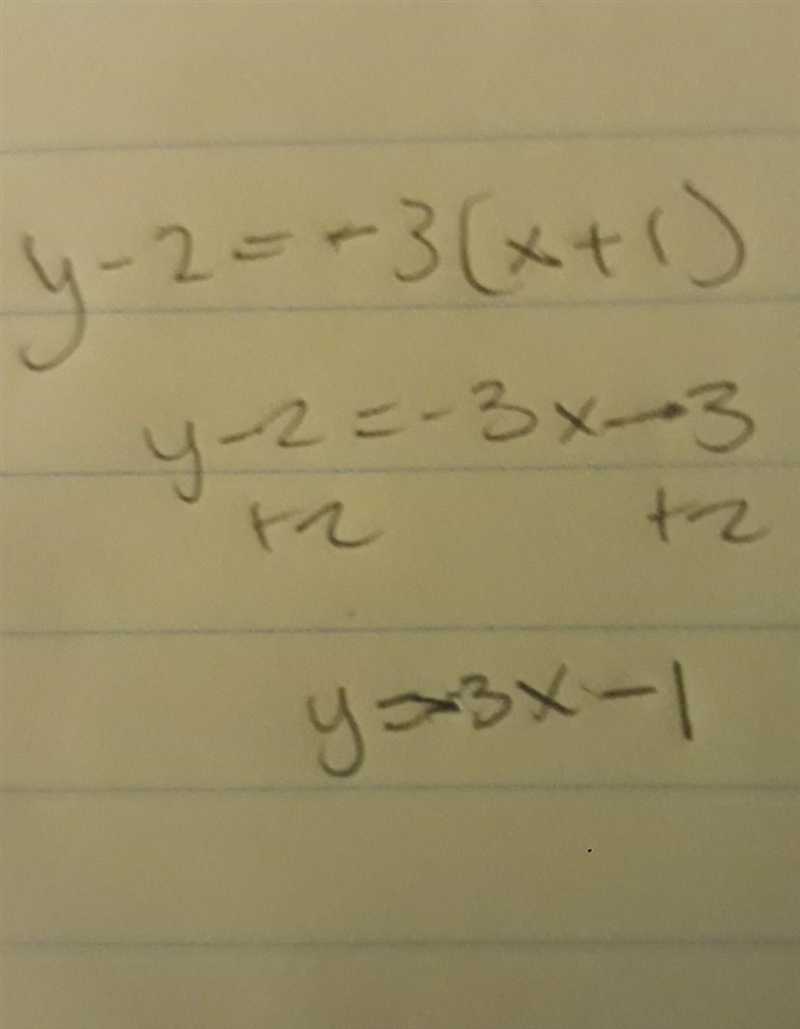 y-2=-3(x+1)
y-2=-3x-3
+2 +2
y=-3x-1